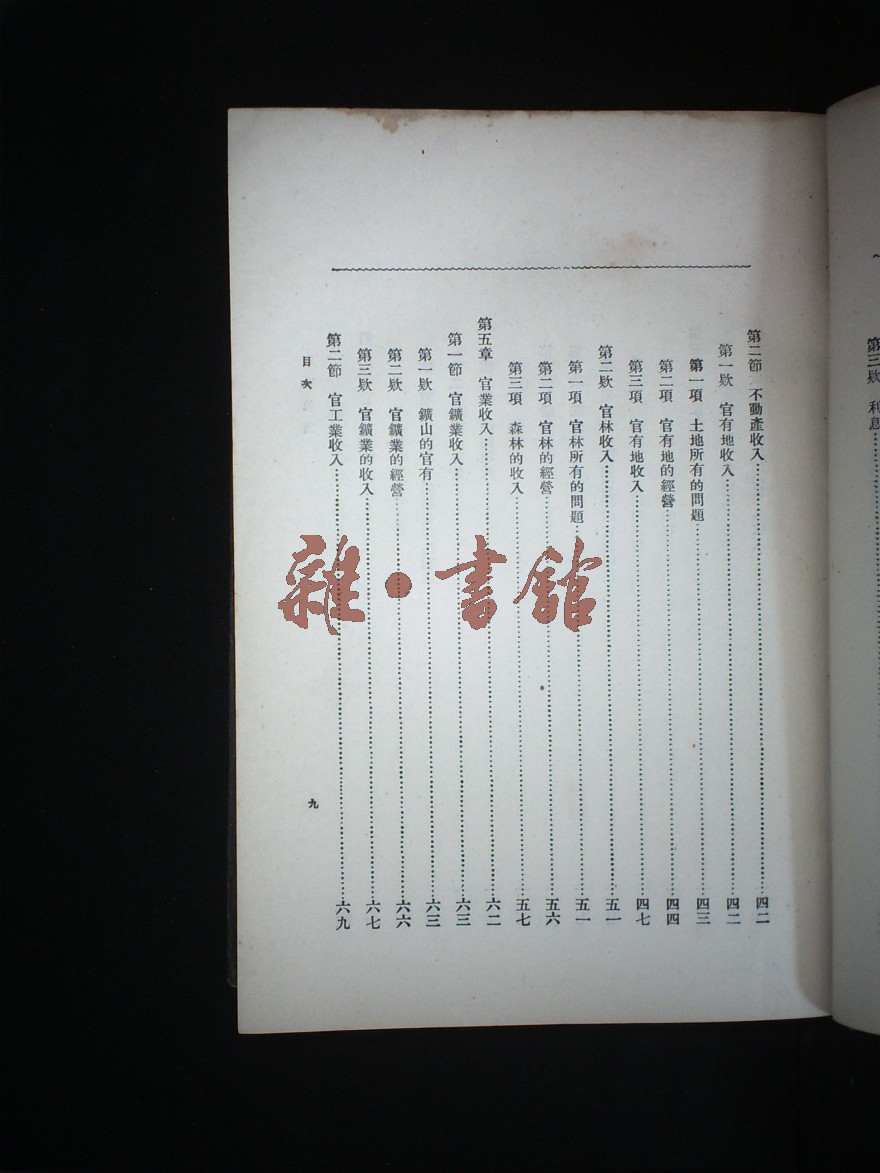 第三欵 利息
第二節 不動產收入……四二
第一欵 官有地收入……四二
第一項 土地所有的問題……四三
第二項 官有地的經營……四四
第三項 官有地收入……四七
第二欵 官林收入……五一
第一項 官林所有的問題……五一
第二項 官林的經營……五六
第三項 森林的收入……五七
第五章 官業收入……六二
第一節 官鑛業收入……六三
第一欵 鑛山的官有……六三
第二欵 官鑛業的經營……六六
第三欵 官鑛業的收入……六七
第二節 官工業收入……六九
目次
九
雜·書館